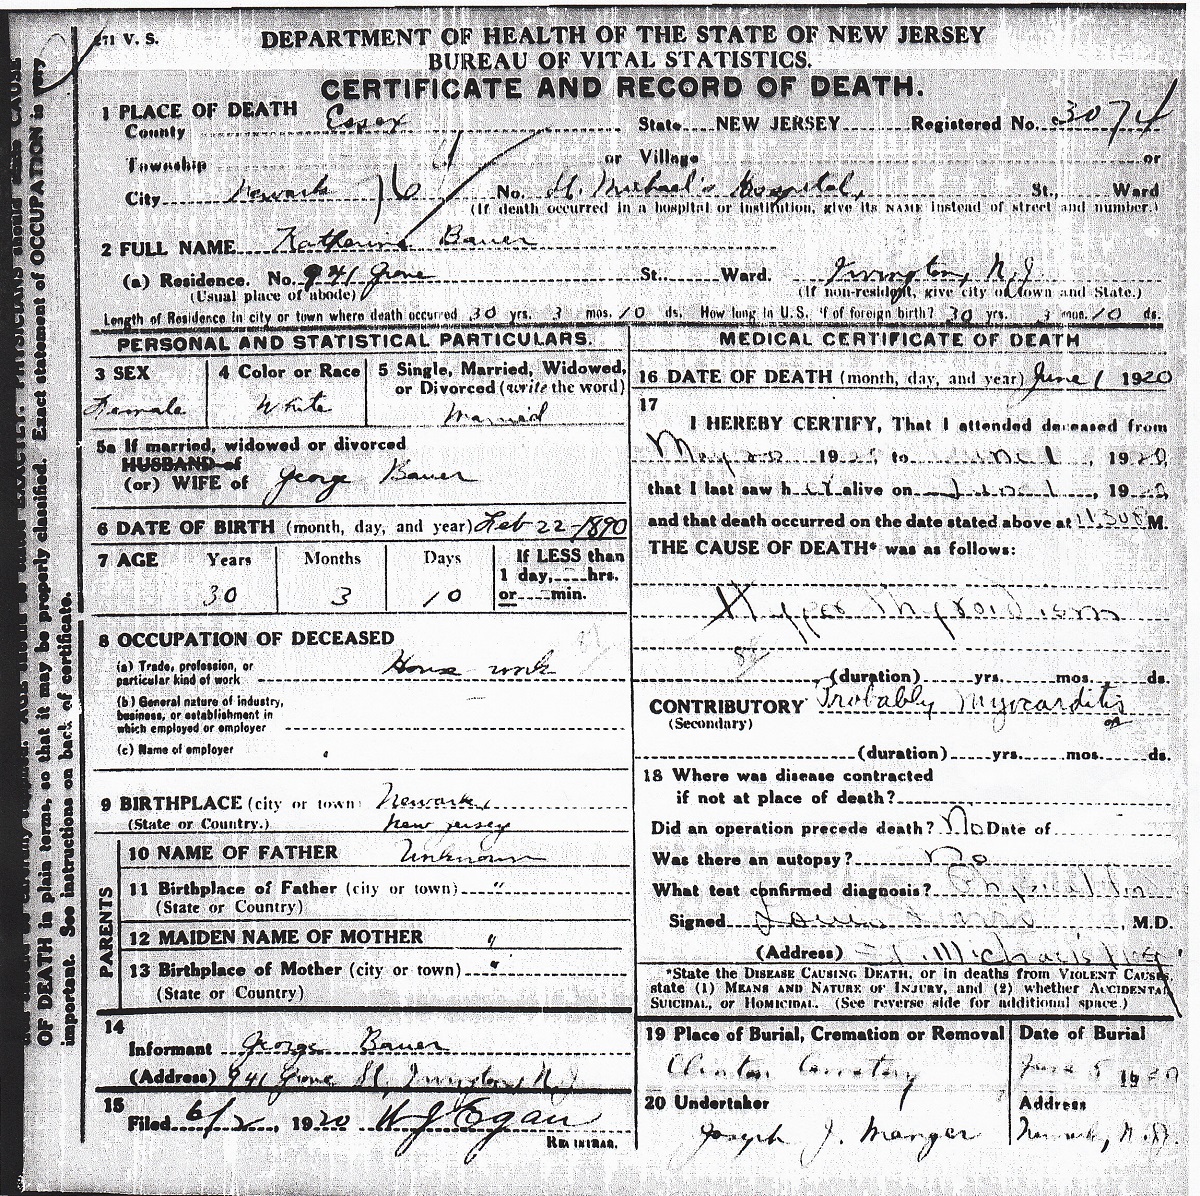 671 V. S.
DEPARTMENT OF HEALTH OF THE STATE OF NEW JERSEY
BUREAU OF VITAL STATISTICS.
CERTIFICATE AND RECORD OF DEATH.
1 PLACE OF DEATH
County Essex State NEW JERSEY Registered No. 3074
Township or Village or
City Newark 76 No. St. Michael's Hospital, St., Ward
(If death occurred in a hospital or institution, give its NAME instead of street and number.)
2 FULL NAME Katherine Bauer
(a) Residence. No. 941 Grove St. Ward. Irvington, N.J.
(Usual place of abode) (If non-resident, give city or town and State.)
Length of Residence in city or town where death occurred 30 yrs. 3 mos. 10 ds. How long in U.S. if of foreign birth? 30 yrs. 3 mos. 10 ds.
PERSONAL AND STATISTICAL PARTICULARS.
3 SEX
Female
4 Color or Race
White
5 Single, Married, Widowed,
or Divorced (write the word)
Married
5a If married, widowed or divorced
HUSBAND of
(or) WIFE of George Bauer
6 DATE OF BIRTH (month, day, and year) Feb 22-1890
7 AGE Years Months Days If LESS than
1 day, hrs.
30 3 10 or min.
8 OCCUPATION OF DECEASED
(a) Trade, profession, or
particular kind of work House work
(b) General nature of industry,
business, or establishment in
which employed or employer
(c) Name of employer
9 BIRTHPLACE (city or town) Newark,
(State or Country.) New Jersey
PARENTS
10 NAME OF FATHER Unknown
11 Birthplace of Father (city or town) "
(State or Country)
12 MAIDEN NAME OF MOTHER "
13 Birthplace of Mother (city or town) "
(State or Country)
14
Informant George Bauer
(Address) 941 Grove St. Irvington, N.J.
15
Filed 6/2, 1920 W J Egan
REGISTRAR.
MEDICAL CERTIFICATE OF DEATH
16 DATE OF DEATH (month, day, and year) June 1 1920
17
I HEREBY CERTIFY, That I attended deceased from
May 1920, to June 1, 1920,
that I last saw her alive on June 1, 1920,
and that death occurred on the date stated above at M.
THE CAUSE OF DEATH* was as follows:
Hyper Thyroidism
88
(duration) yrs. mos. ds.
CONTRIBUTORY Probably Myocarditis
(Secondary)
(duration) yrs. mos. ds.
18 Where was disease contracted
if not at place of death?
Did an operation precede death? No Date of
Was there an autopsy? No
What test confirmed diagnosis?
Signed Louis , M.D.
(Address) St. Michael's Hosp
*State the DISEASE CAUSING DEATH, or in deaths from VIOLENT CAUSES,
state (1) MEANS AND NATURE OF INJURY, and (2) whether ACCIDENTAL,
SUICIDAL, or HOMICIDAL. (See reverse side for additional space.)
19 Place of Burial, Cremation or Removal
Clinton Cemetery
Date of Burial
June 5 1920
20 Undertaker
Joseph J. Manger
Address
Newark, N.J.
OF DEATH in plain terms, so that it may be properly classified. Exact statement of OCCUPATION is very
important. See instructions on back of certificate.